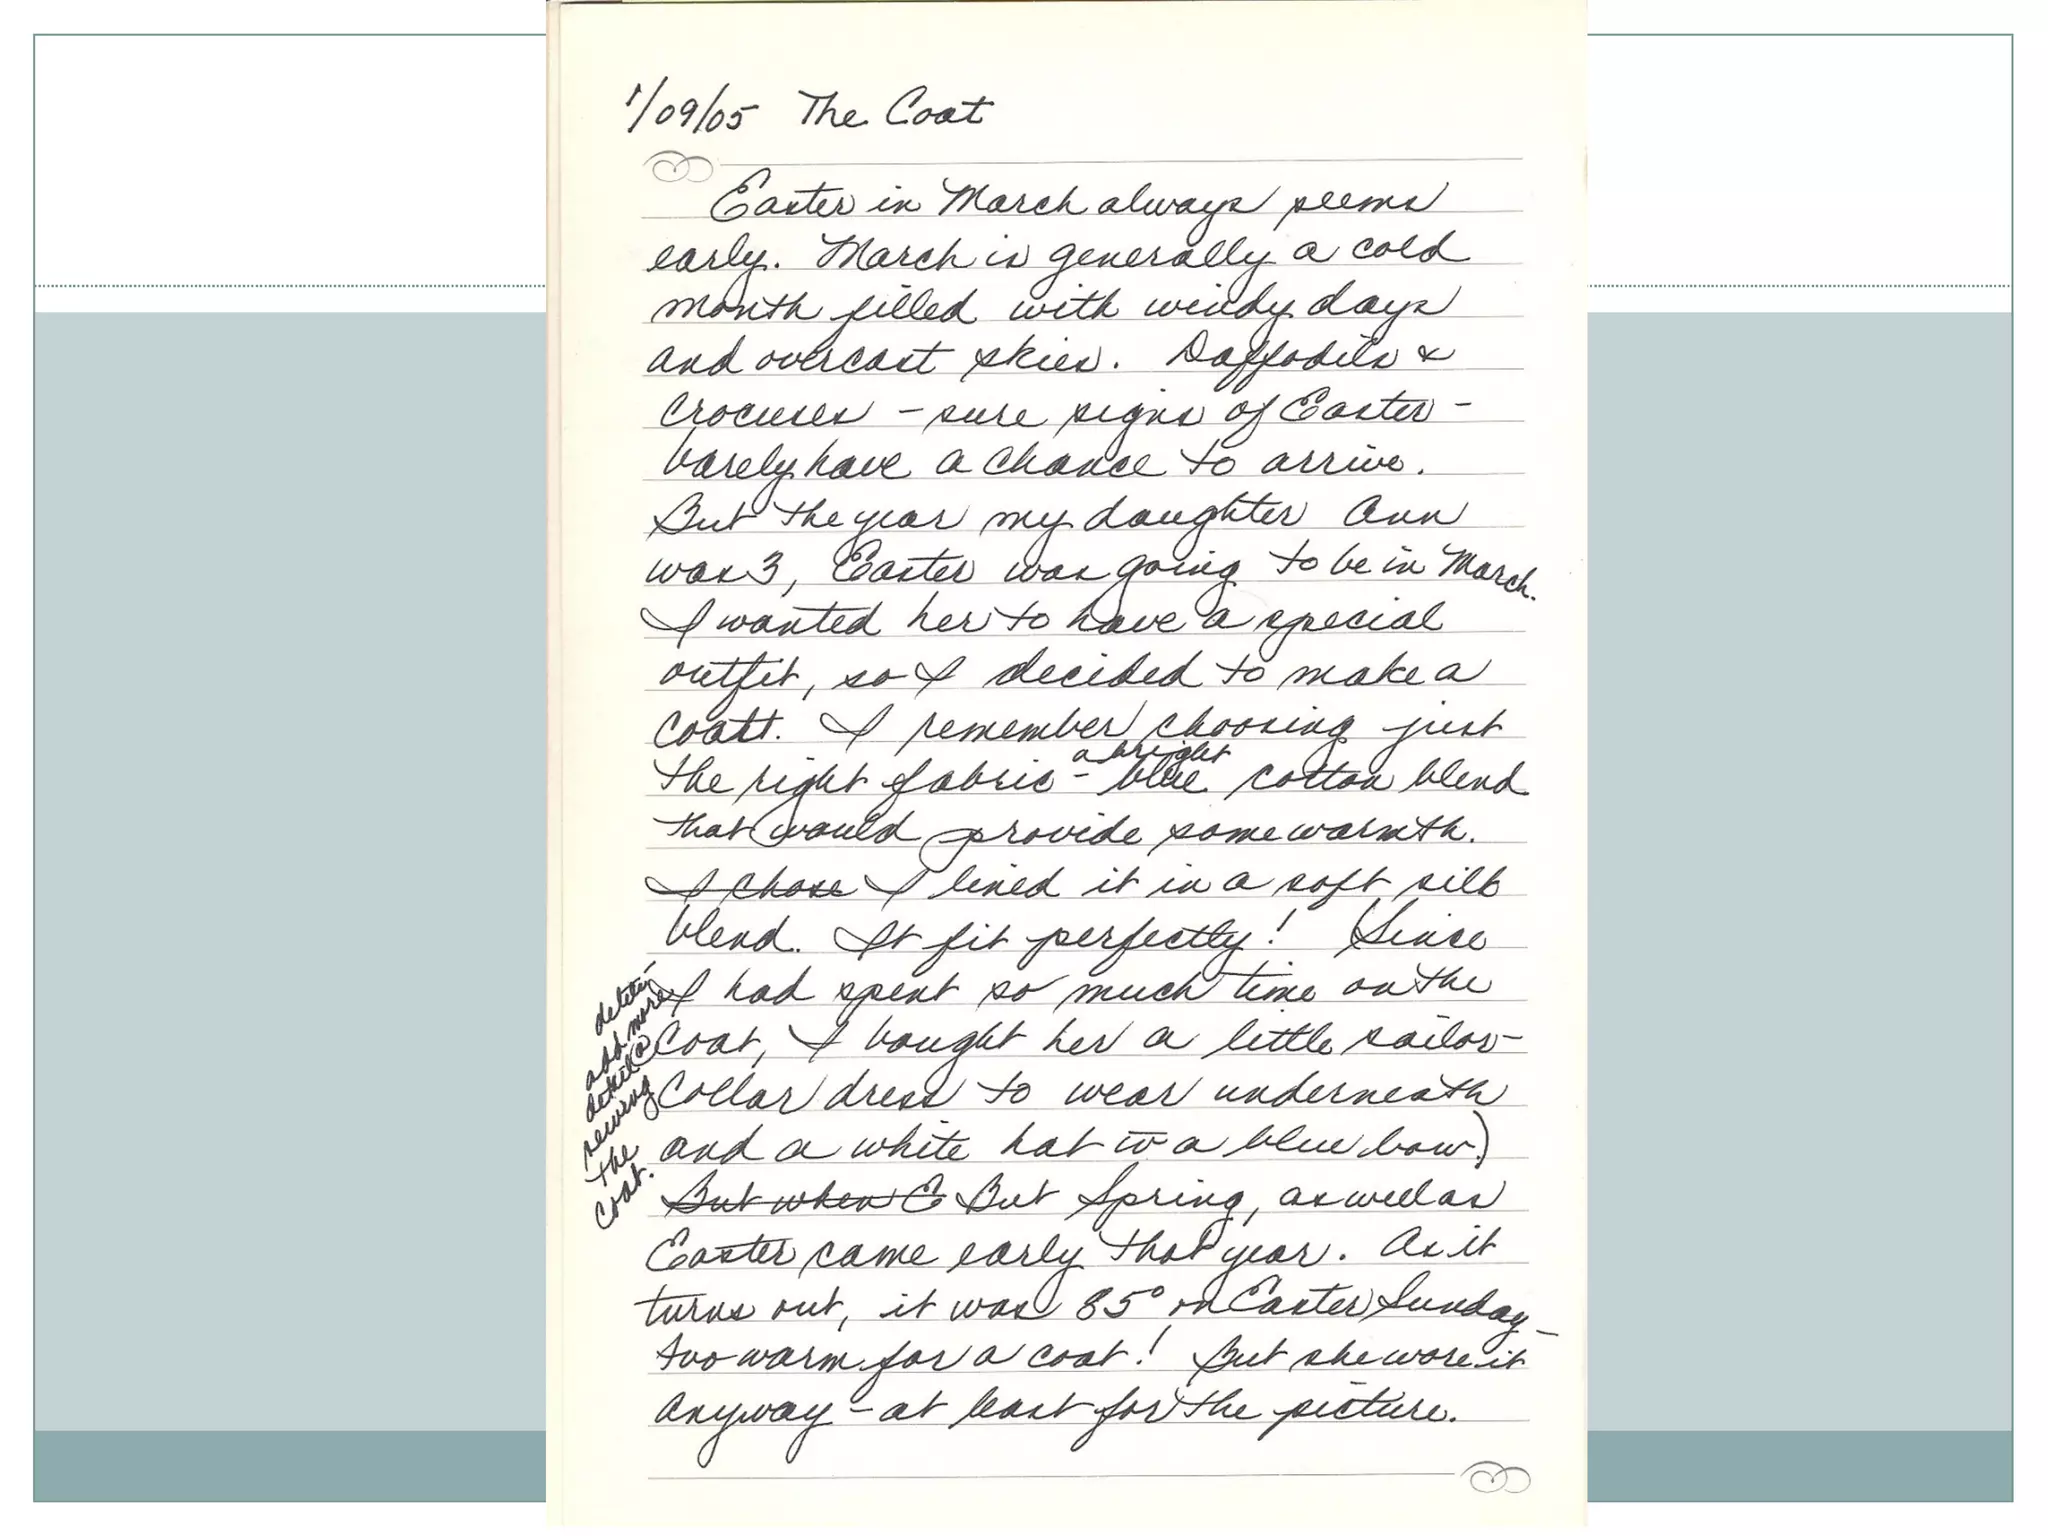 1/09/05 The Coat
Easter in March always seems
early. March is generally a cold
month filled with windy days
and overcast skies. Daffodils &
crocuses – sure signs of Easter –
barely have a chance to arrive.
But the year my daughter Ann
was 3, Easter was going to be in March.
I wanted her to have a special
outfit, so I decided to make a
coat. I remember choosing just
a bright
the right fabric – blue cotton blend
that would provide some warmth.
I chose I lined it in a soft silk
blend. It fit perfectly! (Since
I had spent so much time on the
coat, I bought her a little sailor-
collar dress to wear underneath
and a white hat w̅ a blue bow.)
But when E But Spring, as well as
Easter came early that year. As it
turns out, it was 85° on Easter Sunday –
too warm for a coat! But she wore it
anyway – at least for the picture.
add more
detail @
sewing
the
coat.